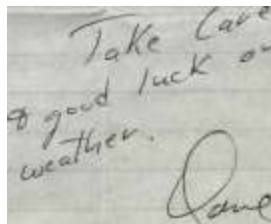 Take Care
& good luck on
weather.
Dave